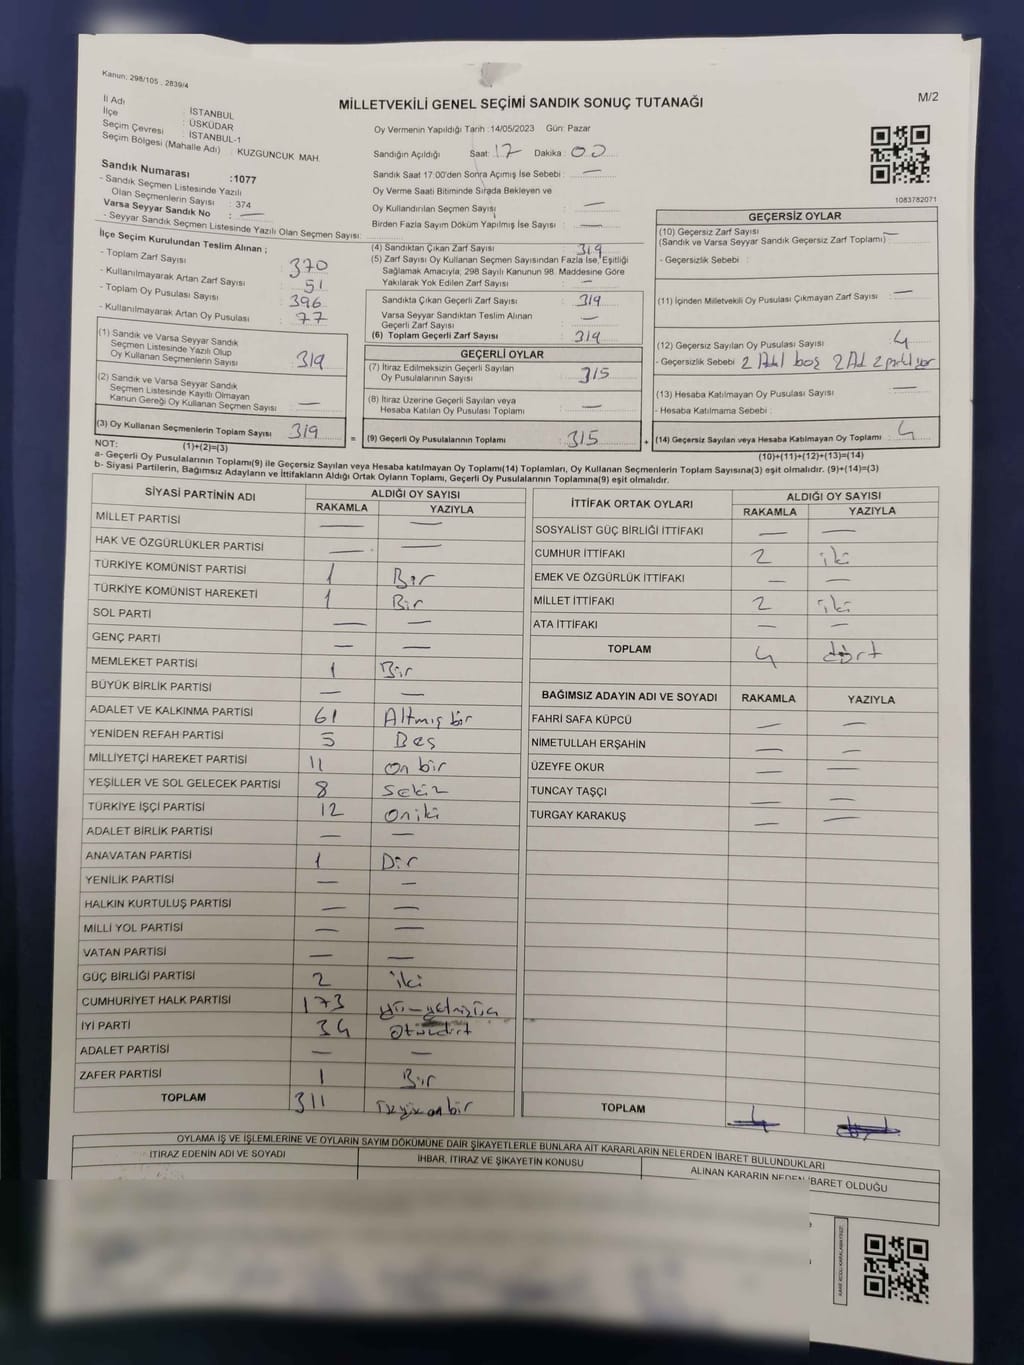 Kanun: 298/105 , 2839/4
M/2
MİLLETVEKİLİ GENEL SEÇİMİ SANDIK SONUÇ TUTANAĞI
İl Adı : İSTANBUL
İlçe : ÜSKÜDAR
Seçim Çevresi : İSTANBUL-1
Seçim Bölgesi (Mahalle Adı) : KUZGUNCUK MAH.
Sandık Numarası :1077
- Sandık Seçmen Listesinde Yazılı
Olan Seçmenlerin Sayısı : 374
Varsa Seyyar Sandık No : —
- Seyyar Sandık Seçmen Listesinde Yazılı Olan Seçmen Sayısı:
İlçe Seçim Kurulundan Teslim Alınan ;
- Toplam Zarf Sayısı : 370
- Kullanılmayarak Artan Zarf Sayısı : 51
- Toplam Oy Pusulası Sayısı : 396
- Kullanılmayarak Artan Oy Pusulası : 77
(1) Sandık ve Varsa Seyyar Sandık
Seçmen Listesinde Yazılı Olup
Oy Kullanan Seçmenlerin Sayısı : 319
(2) Sandık ve Varsa Seyyar Sandık
Seçmen Listesinde Kayıtlı Olmayan
Kanun Gereği Oy Kullanan Seçmen Sayısı : —
(3) Oy Kullanan Seçmenlerin Toplam Sayısı : 319
Oy Vermenin Yapıldığı Tarih :14/05/2023 Gün: Pazar
Sandığın Açıldığı Saat: 17 Dakika: 00
Sandık Saat 17:00'den Sonra Açımış İse Sebebi : —
Oy Verme Saati Bitiminde Sırada Bekleyen ve
Oy Kullandırılan Seçmen Sayısı : —
Birden Fazla Sayım Döküm Yapılmış İse Sayısı : —
(4) Sandıktan Çıkan Zarf Sayısı : 319
(5) Zarf Sayısı Oy Kullanan Seçmen Sayısından Fazla İse, Eşitliği
Sağlamak Amacıyla; 298 Sayılı Kanunun 98. Maddesine Göre
Yakılarak Yok Edilen Zarf Sayısı : —
Sandıkta Çıkan Geçerli Zarf Sayısı : 319
Varsa Seyyar Sandıktan Teslim Alınan
Geçerli Zarf Sayısı : —
(6) Toplam Geçerli Zarf Sayısı : 319
GEÇERLİ OYLAR
(7) İtiraz Edilmeksizin Geçerli Sayılan
Oy Pusulalarının Sayısı : 315
(8) İtiraz Üzerine Geçerli Sayılan veya
Hesaba Katılan Oy Pusulası Toplamı : —
= (9) Geçerli Oy Pusulalarının Toplamı : 315 +
1083782071
GEÇERSİZ OYLAR
(10) Geçersiz Zarf Sayısı : —
(Sandık ve Varsa Seyyar Sandık Geçersiz Zarf Toplamı)
- Geçersizlik Sebebi :
(11) İçinden Milletvekili Oy Pusulası Çıkmayan Zarf Sayısı : —
(12) Geçersiz Sayılan Oy Pusulası Sayısı : 4
- Geçersizlik Sebebi : 2 Adet boş 2 Ad 2
(13) Hesaba Katılmayan Oy Pusulası Sayısı : —
- Hesaba Katılmama Sebebi :
(14) Geçersiz Sayılan veya Hesaba Katılmayan Oy Toplamı : 4
NOT: (1)+(2)=(3) (10)+(11)+(12)+(13)=(14)
a- Geçerli Oy Pusulalarının Toplamı(9) ile Geçersiz Sayılan veya Hesaba katılmayan Oy Toplamı(14) Toplamları, Oy Kullanan Seçmenlerin Toplam Sayısına(3) eşit olmalıdır. (9)+(14)=(3)
b- Siyasi Partilerin, Bağımsız Adayların ve İttifakların Aldığı Ortak Oyların Toplamı, Geçerli Oy Pusulalarının Toplamına(9) eşit olmalıdır.
SİYASİ PARTİNİN ADI ALDIĞI OY SAYISI
RAKAMLA YAZIYLA
MİLLET PARTİSİ — —
HAK VE ÖZGÜRLÜKLER PARTİSİ — —
TÜRKİYE KOMÜNİST PARTİSİ 1 Bir
TÜRKİYE KOMÜNİST HAREKETİ 1 Bir
SOL PARTİ — —
GENÇ PARTİ — —
MEMLEKET PARTİSİ 1 Bir
BÜYÜK BİRLİK PARTİSİ — —
ADALET VE KALKINMA PARTİSİ 61 Altmış bir
YENİDEN REFAH PARTİSİ 5 Beş
MİLLİYETÇİ HAREKET PARTİSİ 11 on bir
YEŞİLLER VE SOL GELECEK PARTİSİ 8 Sekiz
TÜRKİYE İŞÇİ PARTİSİ 12 Oniki
ADALET BİRLİK PARTİSİ — —
ANAVATAN PARTİSİ 1 Bir
YENİLİK PARTİSİ — —
HALKIN KURTULUŞ PARTİSİ — —
MİLLİ YOL PARTİSİ — —
VATAN PARTİSİ — —
GÜÇ BİRLİĞİ PARTİSİ 2 iki
CUMHURİYET HALK PARTİSİ 173
İYİ PARTİ 34 Otuzdört
ADALET PARTİSİ — —
ZAFER PARTİSİ 1 Bir
TOPLAM 311
İTTİFAK ORTAK OYLARI ALDIĞI OY SAYISI
RAKAMLA YAZIYLA
SOSYALİST GÜÇ BİRLİĞİ İTTİFAKI — —
CUMHUR İTTİFAKI 2 iki
EMEK VE ÖZGÜRLÜK İTTİFAKI — —
MİLLET İTTİFAKI 2 iki
ATA İTTİFAKI — —
TOPLAM 4 dört
BAĞIMSIZ ADAYIN ADI VE SOYADI RAKAMLA YAZIYLA
FAHRİ SAFA KÜPCÜ — —
NİMETULLAH ERŞAHİN — —
ÜZEYFE OKUR — —
TUNCAY TAŞÇI — —
TURGAY KARAKUŞ — —
TOPLAM 4 dört
OYLAMA İŞ VE İŞLEMLERİNE VE OYLARIN SAYIM DÖKÜMÜNE DAİR ŞİKAYETLERLE BUNLARA AİT KARARLARIN NELERDEN İBARET BULUNDUKLARI
İTİRAZ EDENİN ADI VE SOYADI
İHBAR, İTİRAZ VE ŞİKAYETİN KONUSU
ALINAN KARARIN NEDEN İBARET OLDUĞU